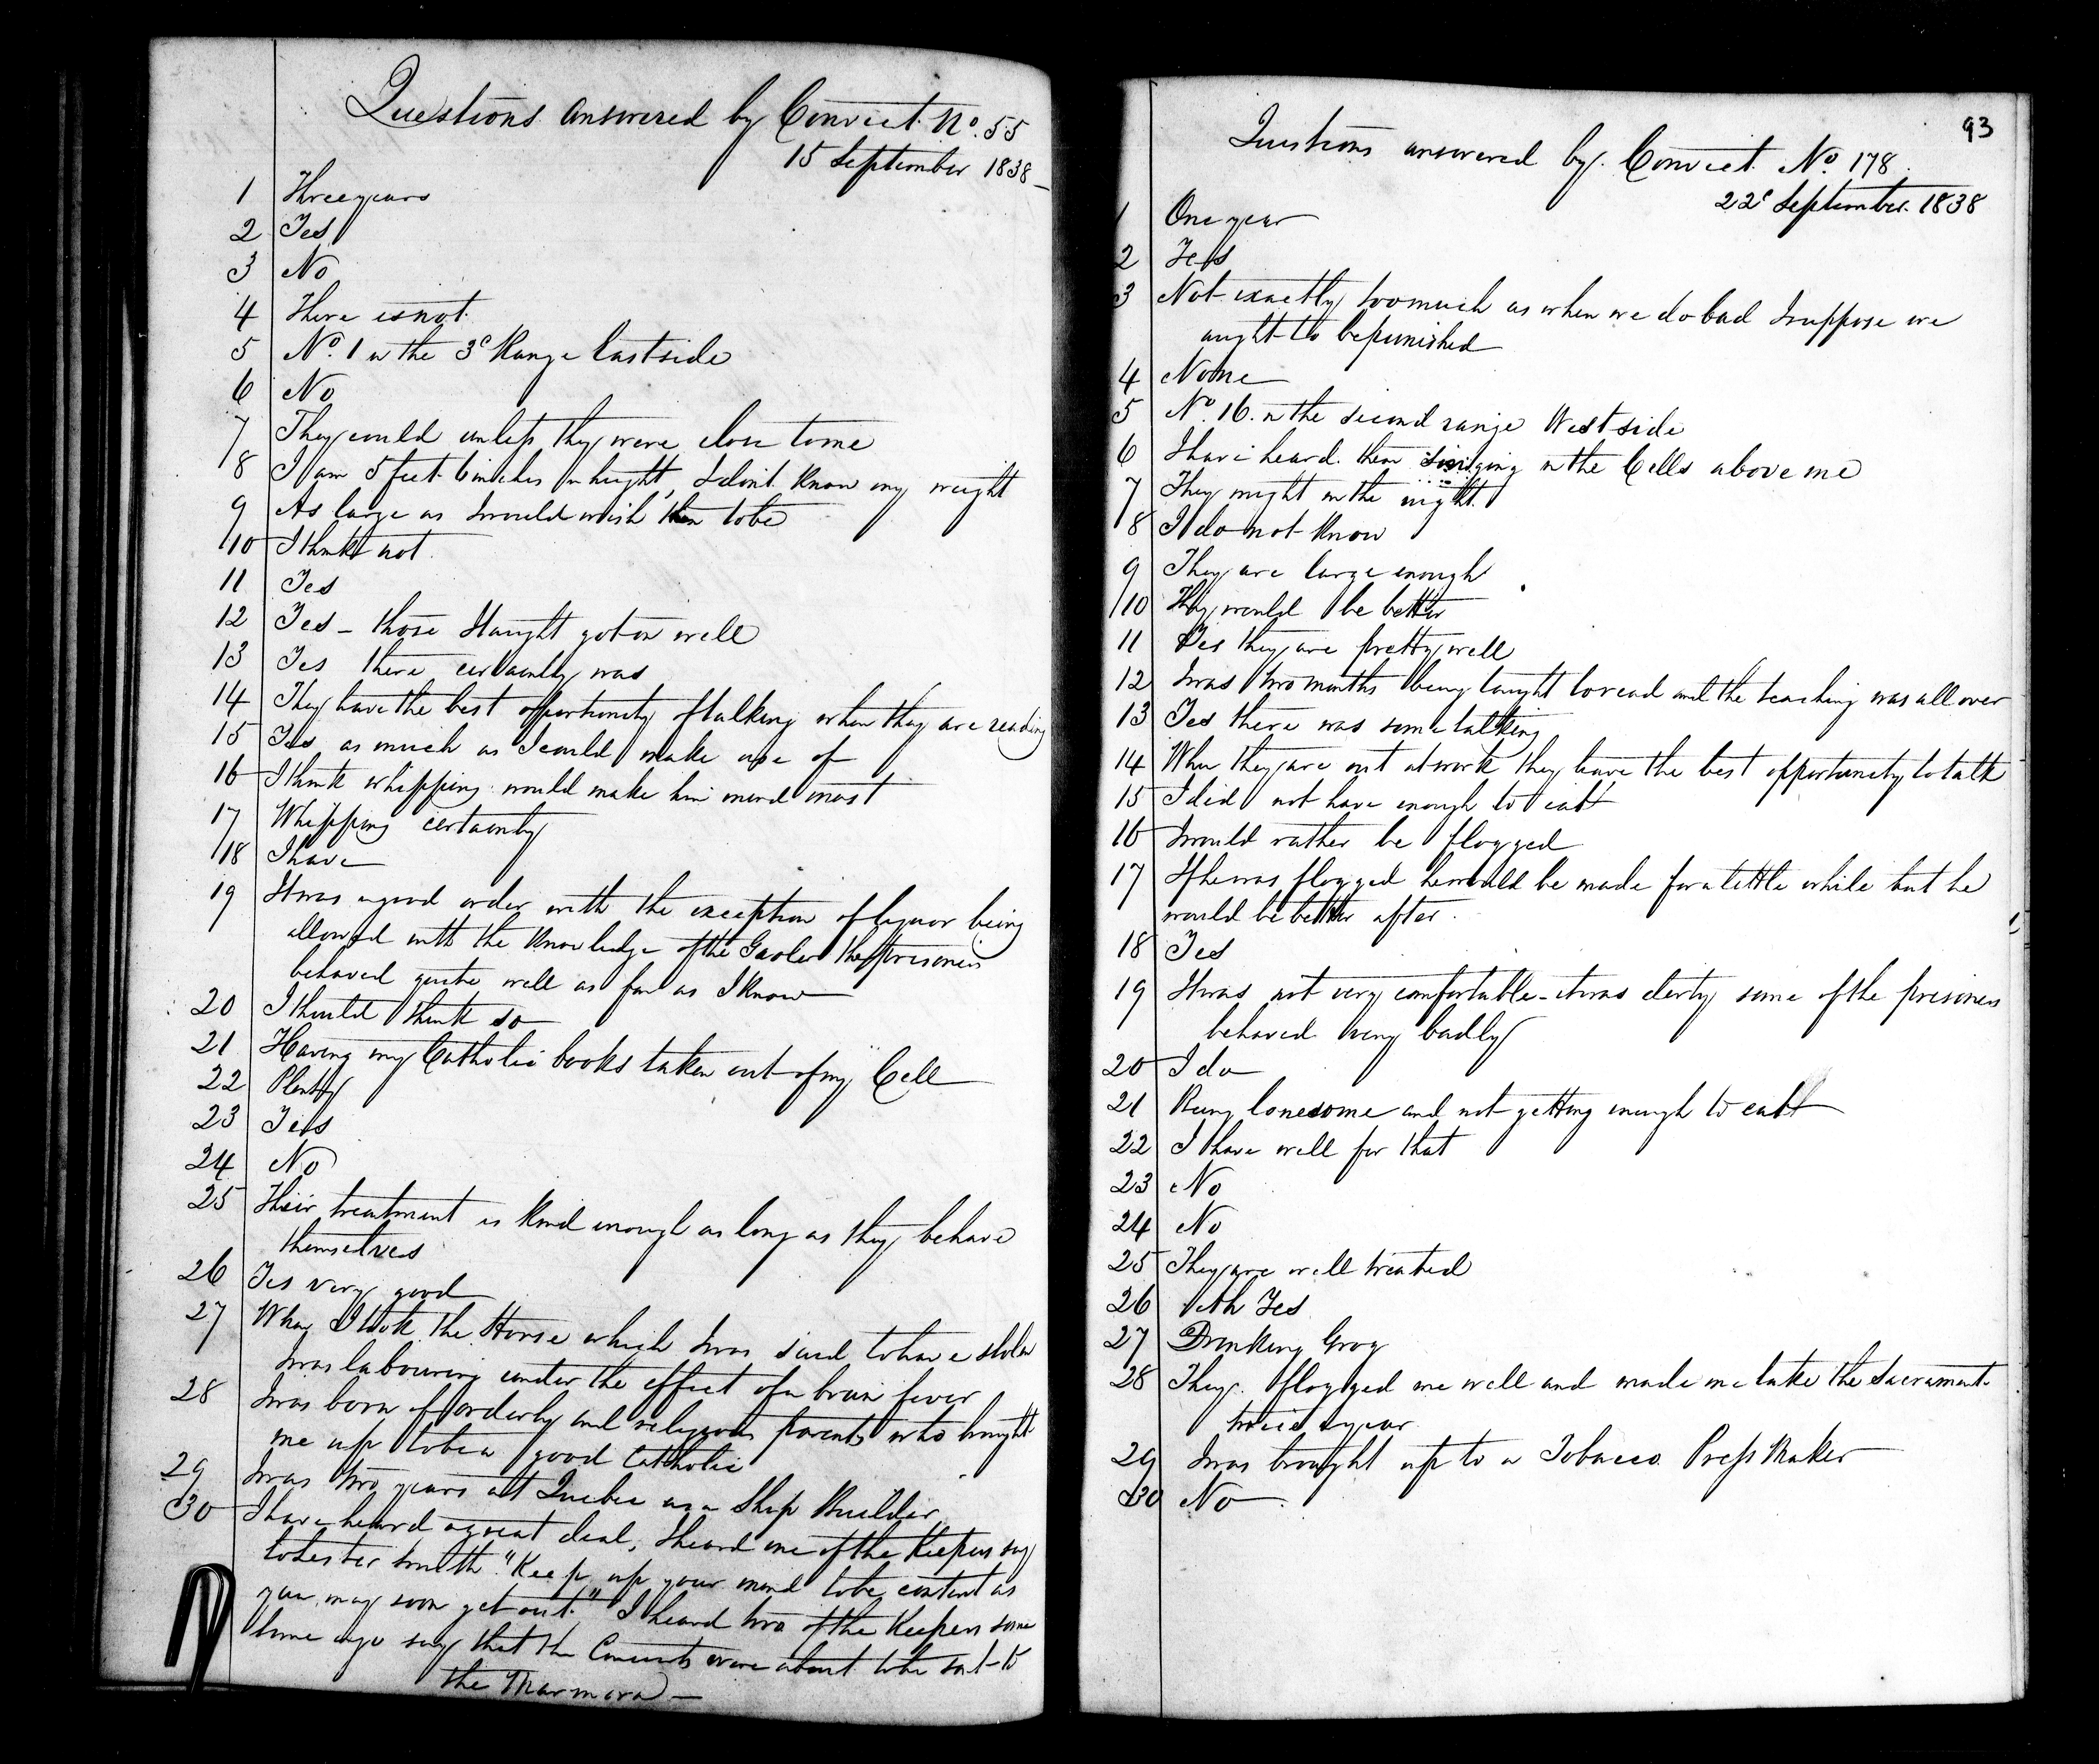 Questions answered by Convict No. 55
15 September 1838
1 Three years
2 Yes
3 No
4 There is not
5 No. 1 in the 3d Range East side
6 No
7 They could unless they were close to me
8 I am 5 feet 6 inches in height, I don't know my weight
9 As large as I would wish them to be
10 I think not.
11 Yes
12 Yes - those I taught got on well
13 Yes there certainly was
14 They have the best opportunity of talking when they are reading
15 Yes as much as I could make use of
16 I think whipping would make him mind most
17 Whipping certainly
18 I have
19 It was in good order with the exception of liquor being
allowed with the knowledge of the Gaoler the prisoners
behaved quite well as far as I know
20 I should think so
21 Having my Catholic books taken out of my Cell
22 Plenty
23 Yes
24 No
25 Their treatment is kind enough as long as they behave
themselves
26 Yes very good
27 When I took the Horse which I was said to have stolen
I was labouring under the effect of a brain fever
28 I was born of orderly and religious parents who brought
me up to be a good Catholic
29 I was two years at Quebec as a Ship Builder
30 I have heard a great deal, I heard one of the Keepers say
to Lester Smith "Keep up your mind to be content as
you may soon get out." I heard two of the Keepers some
time ago say that the Convicts were about to be sent to
the Marmora -
93
Questions answered by Convict No. 178
22d September 1838
1 One year
2 Yes
3 Not exactly too much as when we do bad I suppose we
aught to be punished
4 None
5 No. 16 in the second range West side
6 I have heard them singing in the Cells above me
7 They might in the night.
8 I do not know
9 They are large enough
10 They would be better
11 Yes they are pretty well
12 I was two months being taught to read and the teaching was all over
13 Yes there was some talking
14 When they are out at work they have the best opportunity to talk
15 I did not have enough to eat
16 I would rather be flogged
17 If he was flogged he would be made for a little while but he
would be better after.
18 Yes
19 It was not very comfortable - it was dirty some of the prisoners
behaved very badly
20 I do
21 Being lonesome and not getting enough to eat
22 I have well for that
23 No
24 No
25 They are well treated
26 Ah Yes
27 Drinking Grog
28 They flogged me well and made me take the Sacrament
twice a year
29 I was brought up to a Tobacco Press Maker
30 No